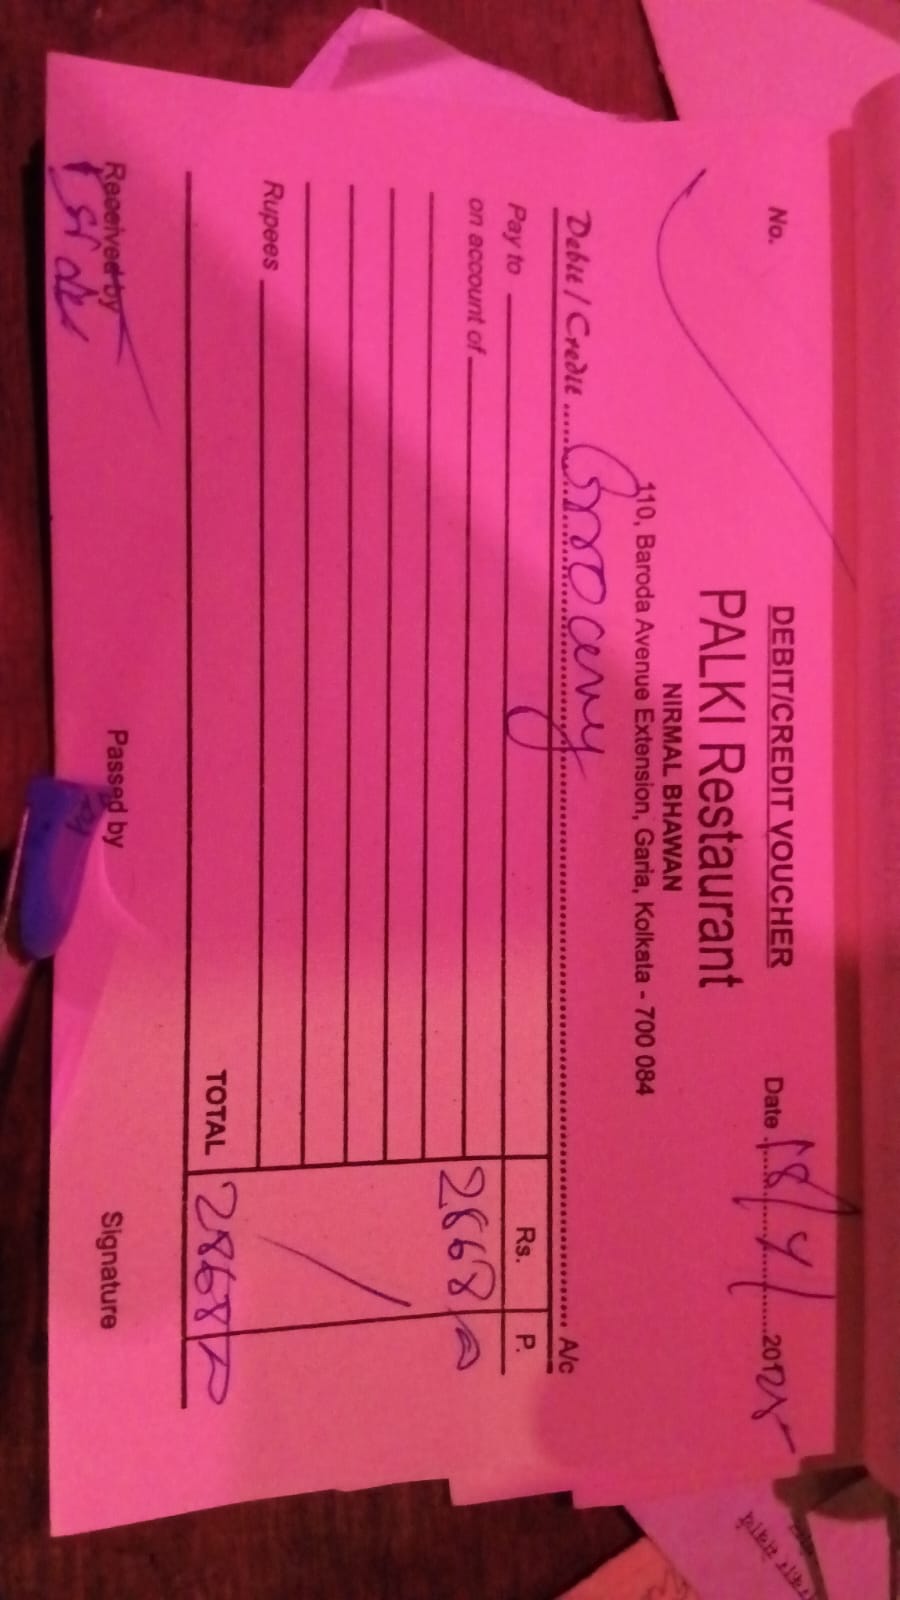 No.
DEBIT/CREDIT VOUCHER
Date 18/4/ 2025
PALKI Restaurant
NIRMAL BHAWAN
110, Baroda Avenue Extension, Garia, Kolkata - 700 084
Debit / Credit Grocery A/c
Pay to Rs. P.
on account of 2868
Rupees
TOTAL 2868
Received by Passed by Signature